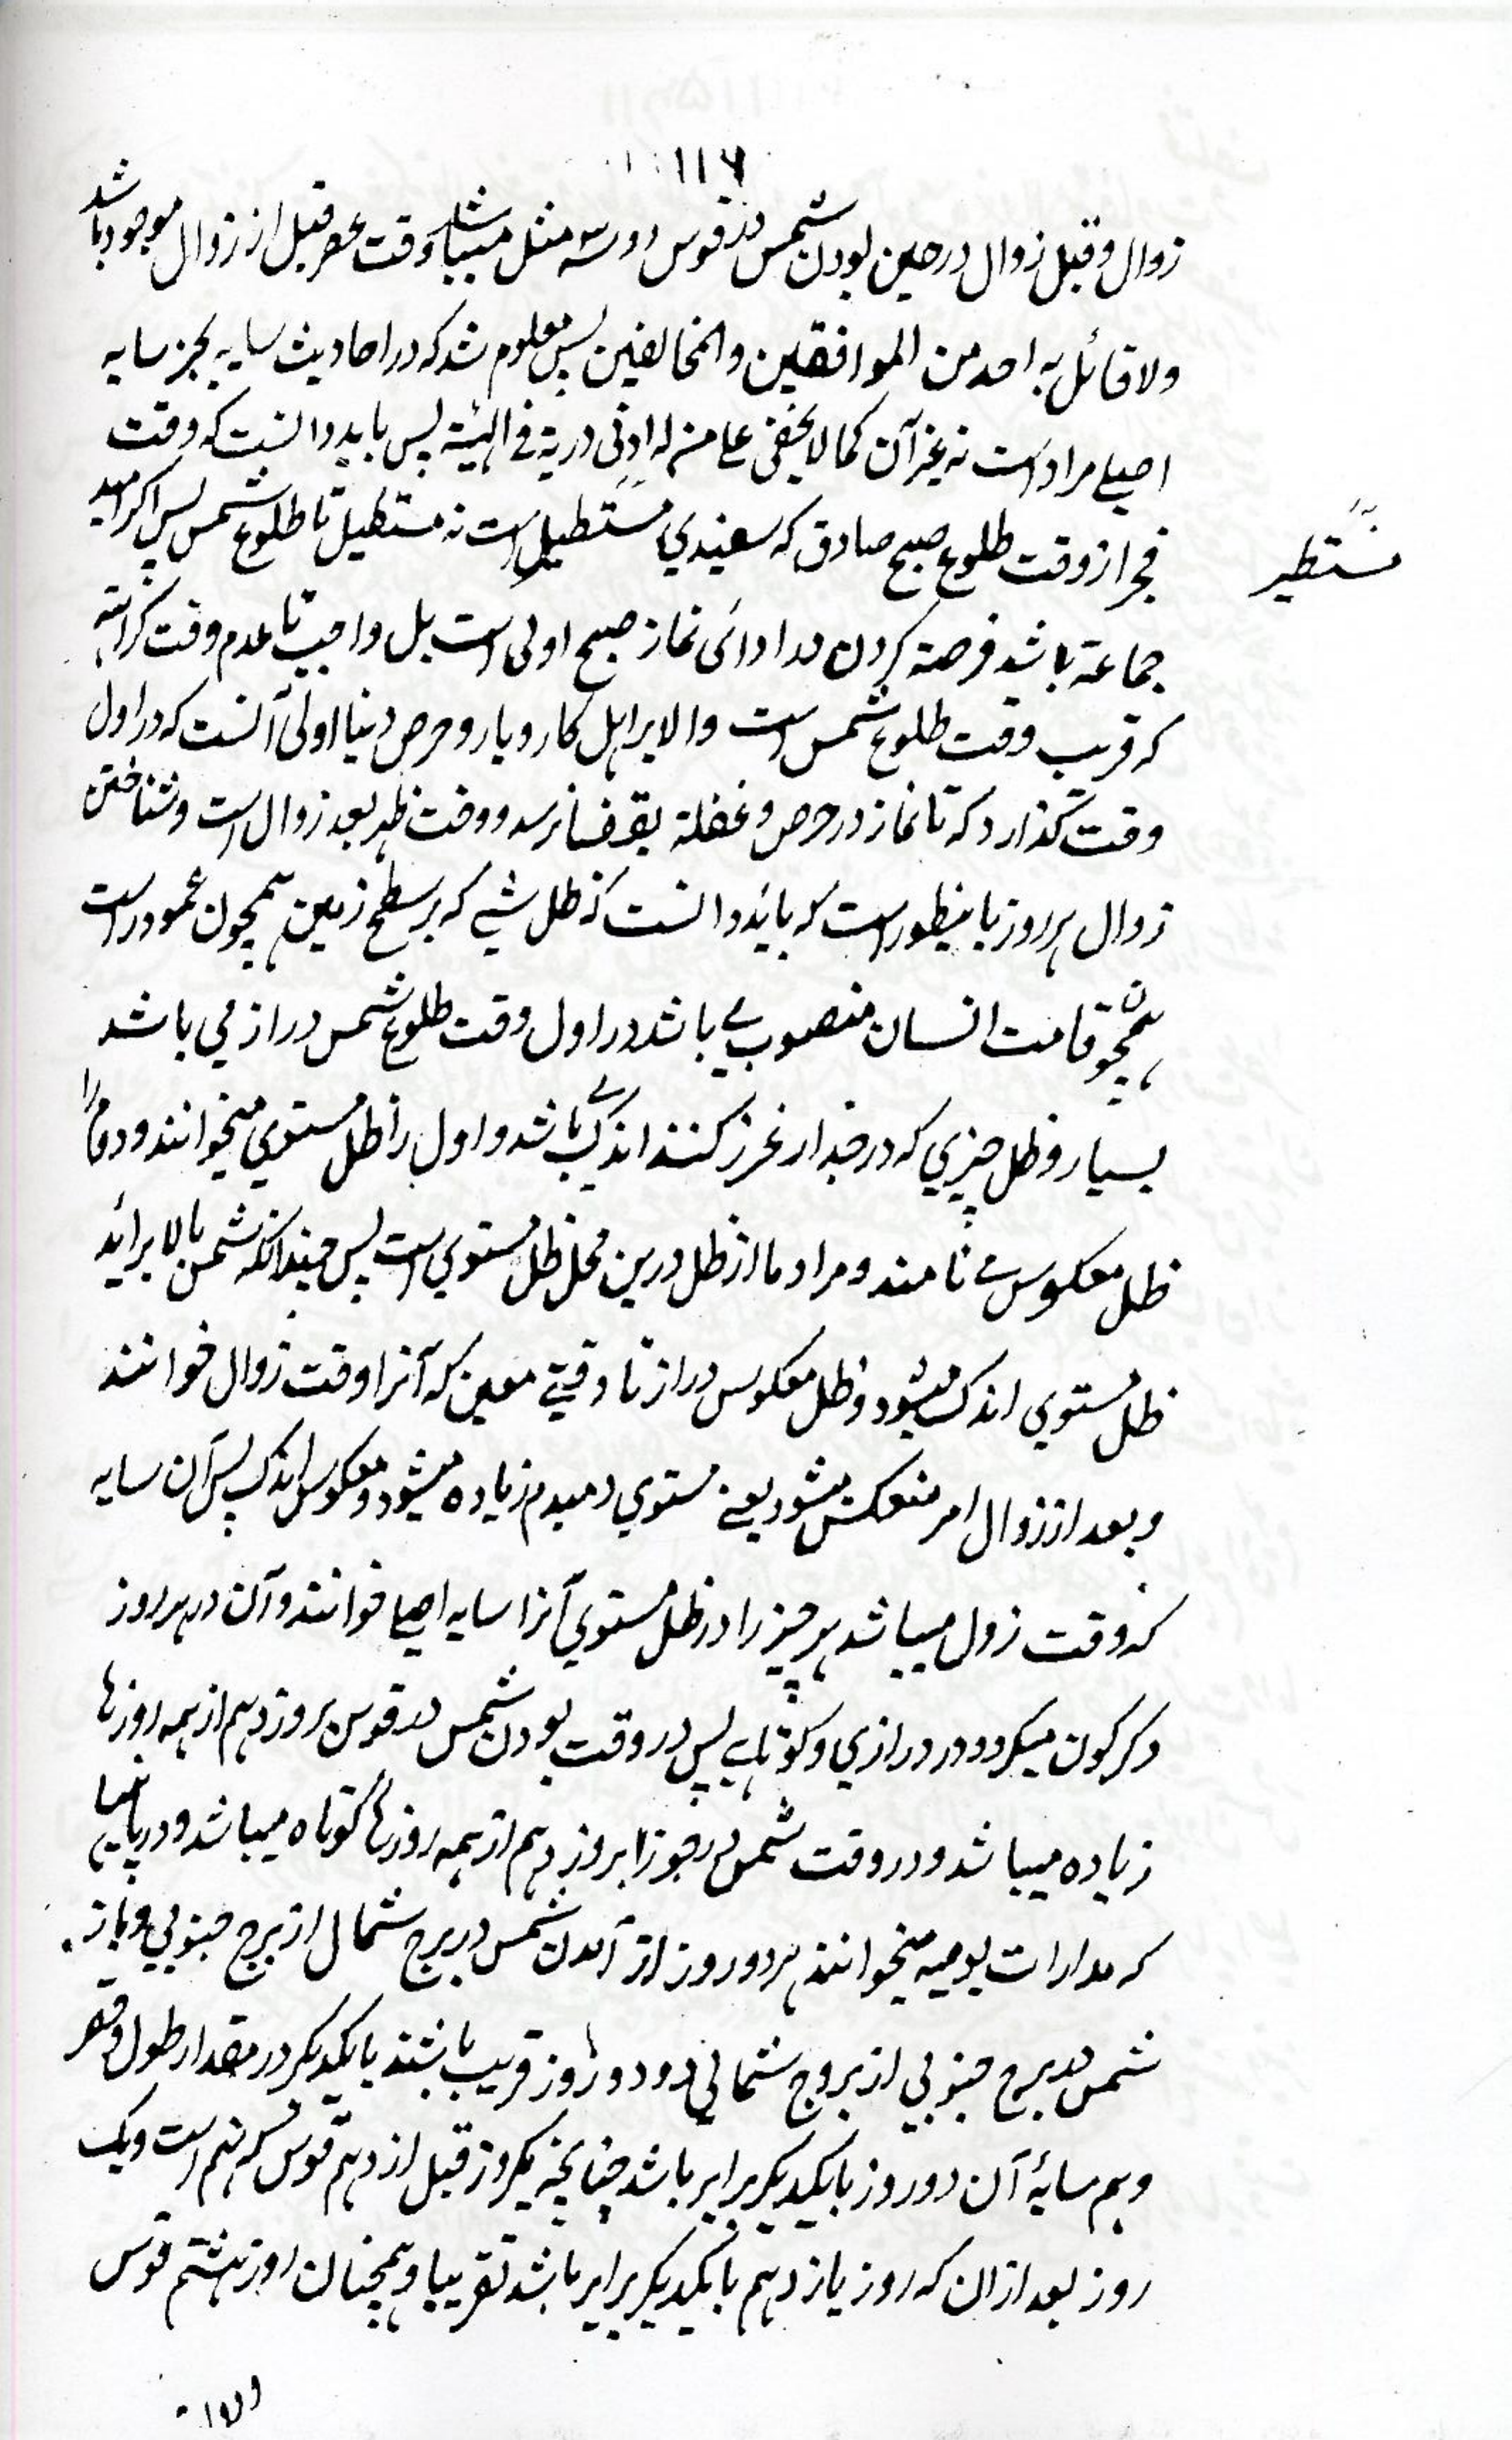 ۱۱۶
زوال و قبل زوال در حین بودن شمس در قوس دو سه مثل میباشد وقت عصر قبل از زوال موجود باشد
ولا قائل به احد من الموافقین والمخالفین پس معلوم شد که در احادیث سایه بجز سایه
اصلے مراد است نه غیر آن کما لا یخفی علی من له ادنی دریة فے الهیئة پس باید دانست که وقت
فجر از وقت طلوع صبح صادق که سفیدي مستطیل است نه مستطیل تا طلوع شمس پس اکر امید
مستطیر
جماعة باشد فرصة کردن در ادائی نماز صبح اولی است بل واجب تا عدم وقت کراهة
که قریب وقت طلوع شمس است والا براہل کاروبار و حرص دنیا اولی آنست که در اول
وقت کذارد که تا نماز در حرص و غفلة بقضا نرسد و وقت ظہر بعد زوال است و شناختن
زوال ہر روز باینطور است که باید دانست که ظل شیے که بر سطح زمین ہمچون عمود راست
ہمچو قامت انسان منصوب مے باشد در اول وقت طلوع شمس دراز مي باشد
بسیار و ظل چیزي که در جدار غرز کنند اندک مے باشد و اول را ظل مستوي میخوانند و دوم را
ظل معکوس مے نامند و مراد ما از ظل درین محل ظل مستوي است پس چندانکه شمس بالا برآید
ظل مستوي اندک میشود و ظل معکوس دراز تا وقتے معین که آنرا وقت زوال خوانند
و بعد از زوال امر منعکس میشود یعنے مستوي دمبدم زیاده میشود و معکوس اندک پس آن سایه
که وقت زول میباشد ہر چیز را در ظل مستوي آنرا سایه اصلے خوانند و آن در ہر روز
دکرکون میکردد در درازي و کوتاہے پس در وقت بودن شمس در قوس بروز دہم از ہمه روزہا
زیاده میباشد و در وقت شمس در جوزا بروز دہم از ہمه روزہا کوتاه میباشد و در
که مدارات یومیه میخوانند ہر دو روز از آمدن شمس در برج شمال از برج جنوبي و باز
شمس در برج جنوبي از بروج شمالي دو دو روز قریب باشند بایکدیکر در مقدار طول و قصر
وہم سایۀ آن دو روز بایکدیکر برابر باشد چنانچه یکروز قبل از دہم قوس که نہم است و یک
روز بعد ازان که روز یازدہم بایکدیکر برابر باشد تقریبا و ہمچنان روز ہشتم قوس